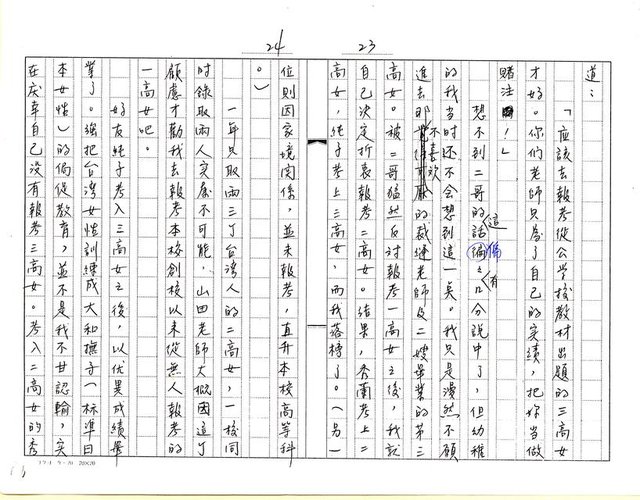 23
道：
「應該去報考從公學校教材出題的三高女
才好。你们老師只為了自己的实績，把你当做
賭注！」
想不到二哥的這話偏偏有百分說中了，但幼稚
的我当时还不会想到這一矣。我只是漫然不願
進去不喜欢的裁縫老師及二嫂畢業的第三
高女。被二哥猛然反讨報考一高女之後，我就
自己決定折衷報考二高女。结果，秀蘭考上二
高女，純子考上三高女，而我落榜了。（另一
24
位則因家境関係，並未報考，直升本校高等科
。）
一年只取兩三丁台湾人的二高女，一校同
时録取兩人实属不可能，山田老師大概因這丁
顧慮才勸我去報考本校創校以来從無人報考的
一高女吧。
好友純子考入三高女之後，以优異成績畢
業了。强把台湾女性訓練成大和撫子（标準日
本女性）的偏從教育，並不是我不甘認輸，实
在庆幸自己没有報考三高女。考入二高女的秀